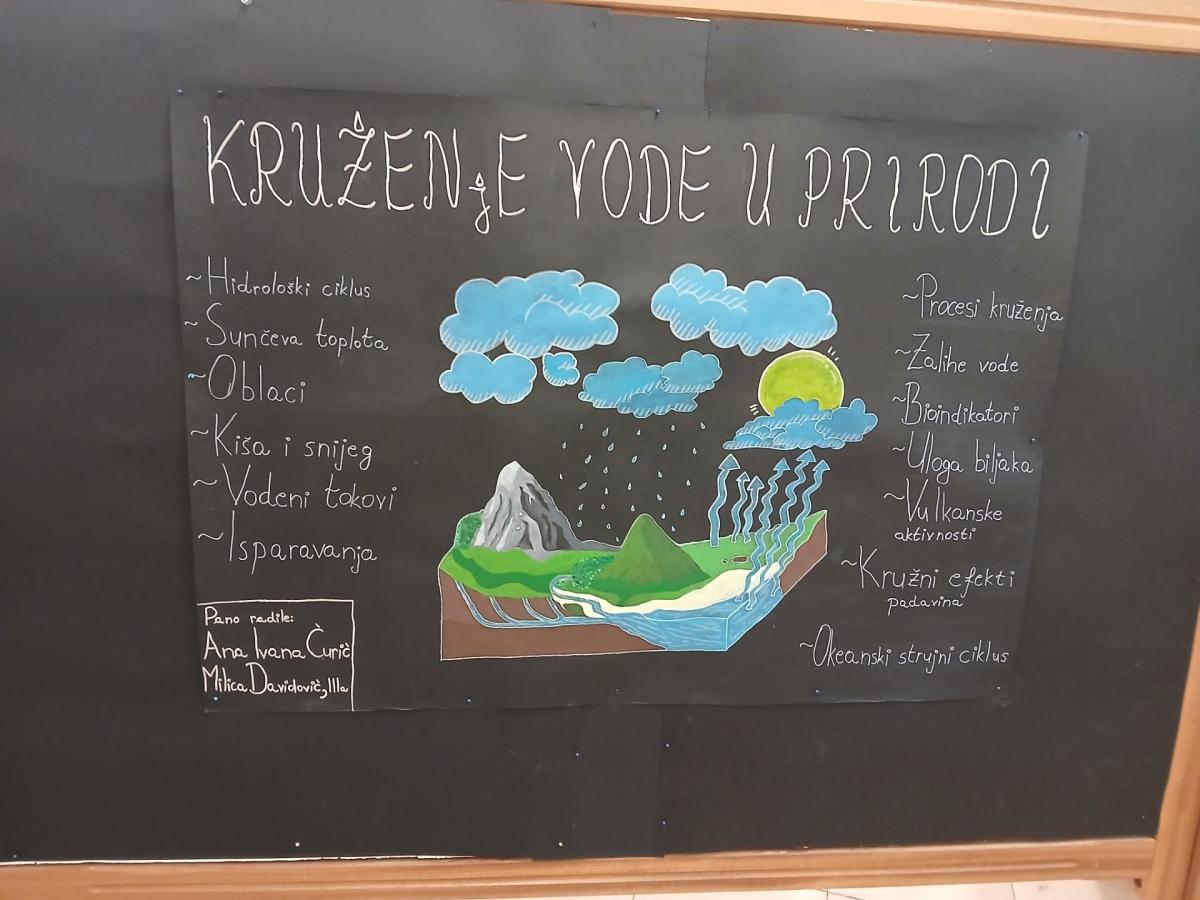 KRUŽENjE VODE U PRIRODI
~Hidrološki ciklus
~Sunčeva toplota
~Oblaci
~Kiša i snijeg
~Vodeni tokovi
~Isparavanja
Pano radile:
Ana Ivana Ćurić
Milica Davidović, IIIa
~Procesi kruženja
~Zalihe vode
~Bioindikatori
~Uloga biljaka
~Vulkanske
aktivnosti
~Kružni efekti
padavina
~Okeanski strujni ciklus